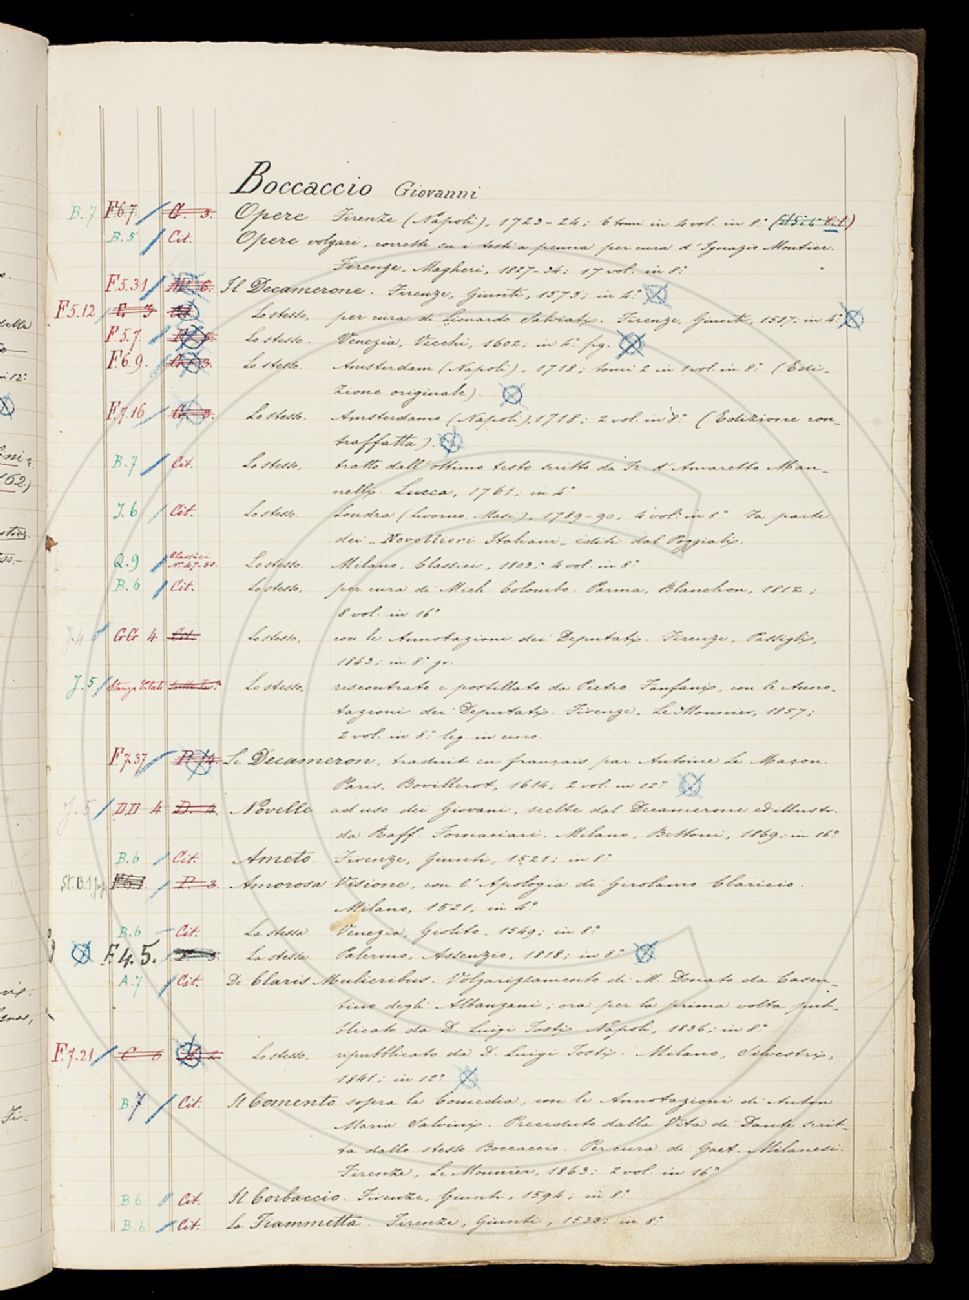 Boccaccio Giovanni
B.7 F6.7 Opere Firenze (Napoli), 1723-24; 6 tomi in 4 vol. in 8°
B.5 Cit. Opere volgari, corrette su i testi a penna per cura d'Ignazio Moutier.
Firenze, Magheri, 1827-34: 17 vol. in 8°
F5.31 Il Decamerone. Firenze, Giunti, 1573; in 4°
F5.12 Lo stesso, per cura di Lionardo Salviati. Firenze, Giunti, 1587. in 4°
F5.7 Lo stesso. Venezia, Vecchi, 1602; in 4° fig.
F6.9. Lo stesso. Amsterdam (Napoli). 1718; tomi 2 in 1 vol. in 8° (Edi-
zione originale).
F7.16 Lo stesso. Amsterdamo (Napoli), 1718; 2 vol. in 8° (Edizione con-
traffatta).
B.7 Cit. Lo stesso, tratto dall'ottimo testo scritto da Fr. d'Amaretto Man-
nelli. Lucca, 1761; in 4°
J.6 Cit. Lo stesso. Londra (Livorno, Masi), 1789-90. 4 vol. in 8° Fa parte
dei "Novellieri Italiani" editi dal Poggiali.
Q.9 Classici Lo stesso. Milano, Classici, 1803: 4 vol. in 8°
B.6 Cit. Lo stesso, per cura di Mich. Colombo. Parma, Blanchon, 1812;
8 vol. in 16°
J.4 GG 4 Cit. Lo stesso, con le Annotazioni dei Deputati. Firenze, Passigli,
1843; in 8° gr.
J.5 Lo stesso, riscontrato e postillato da Pietro Fanfani, con le Anno-
tazioni dei Deputati. Firenze, Le Monnier, 1857;
2 vol. in 8° leg. in uno.
F7.37 Le Decameron, traduit en français par Antoine Le Macon.
Paris, 1614, 2 vol. in 12°
J.5 DD 4 D. 4 Novelle ad uso dei Giovani, scelte dal Decamerone ed illustr.
da Raff. Fornaciari. Milano, Bettoni, 1869: in 16°
B.6 Cit. Ameto. Firenze, Giunti, 1521; in 8°
Amorosa Visione, con l'Apologia di Gerolamo Claricio.
Milano, 1521, in 4°
B.6 Cit. La stessa Venezia, Giolito, 1549; in 8°
F4.5. La stessa. Palermo, Assenzio, 1818; in 8°
A.7 Cit. De Claris Mulieribus. Volgarizzamento di M. Donato da Casen-
tino degli Albanzani; ora per la prima volta pub-
blicato da D. Luigi Tosti. Napoli, 1836; in 8°
F.7.21 Lo stesso, ripubblicato da D. Luigi Tosti. Milano, Silvestri,
1841; in 12°
B.7 Cit. Il Comento sopra la Comedia, con le Annotazioni di Anton
Maria Salvini. Preceduto dalla Vita di Dante scrit-
ta dallo stesso Boccaccio. Per cura di Gaet. Milanesi.
Firenze, Le Monnier, 1863: 2 vol. in 16°
B.6 Cit. Il Corbaccio. Firenze, Giunti, 1594; in 8°
B.6 Cit. La Fiammetta. Firenze, Giunti, 1533: in 8°